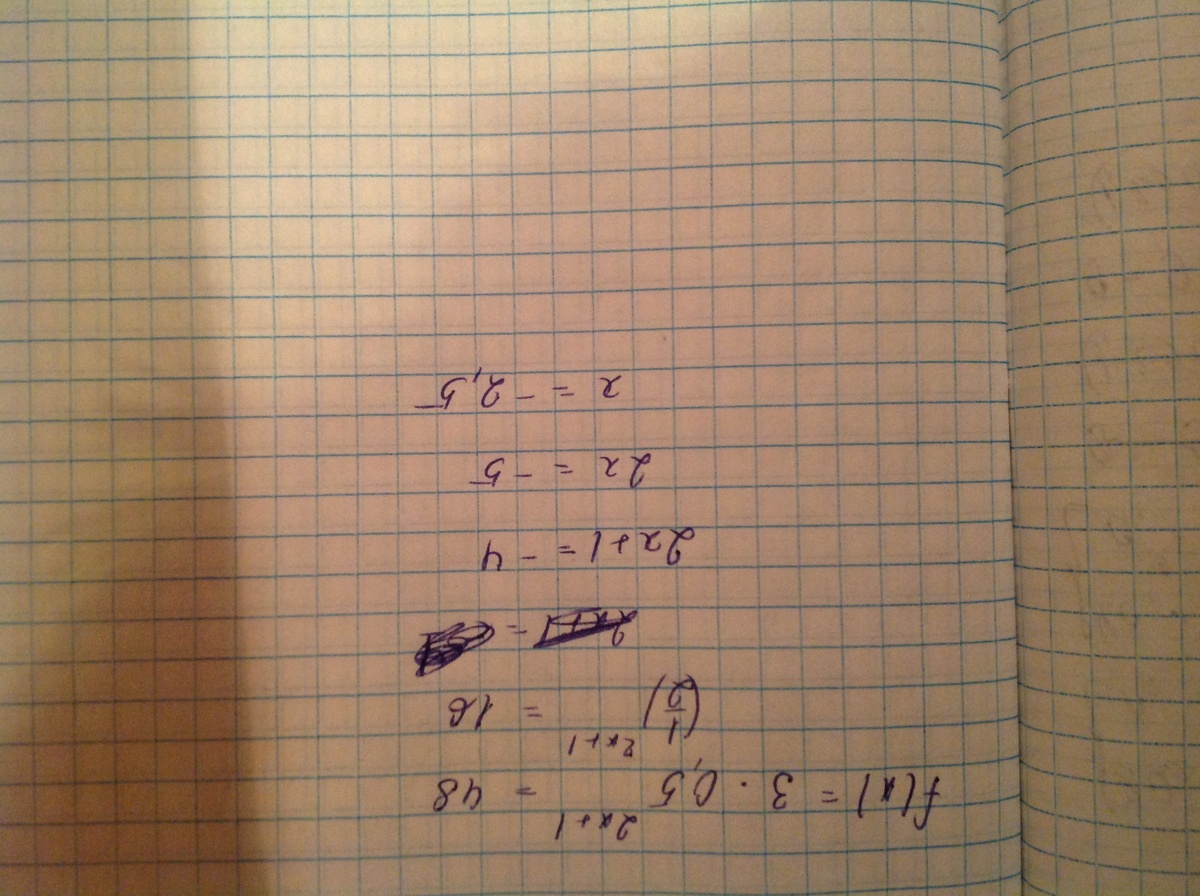 f(x) = 3 · 0,5^{2x+1} = 48
(1/2)^{2x+1} = 16
2x+1 =
2x+1 = -4
2x = -5
x = -2,5